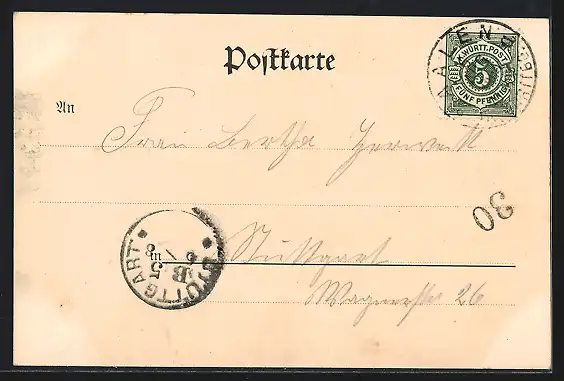 Postkarte
AALEN
K. WÜRTT. POST
5
FÜNF PFENNIG
An
Frau Bertha Herwerth
30
Stuttgart
Wagnerstr 26
STUTTGART
5
B